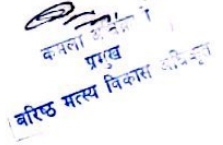 कमला
प्रमुख
वरिष्ठ मत्स्य विकास अधिकृत